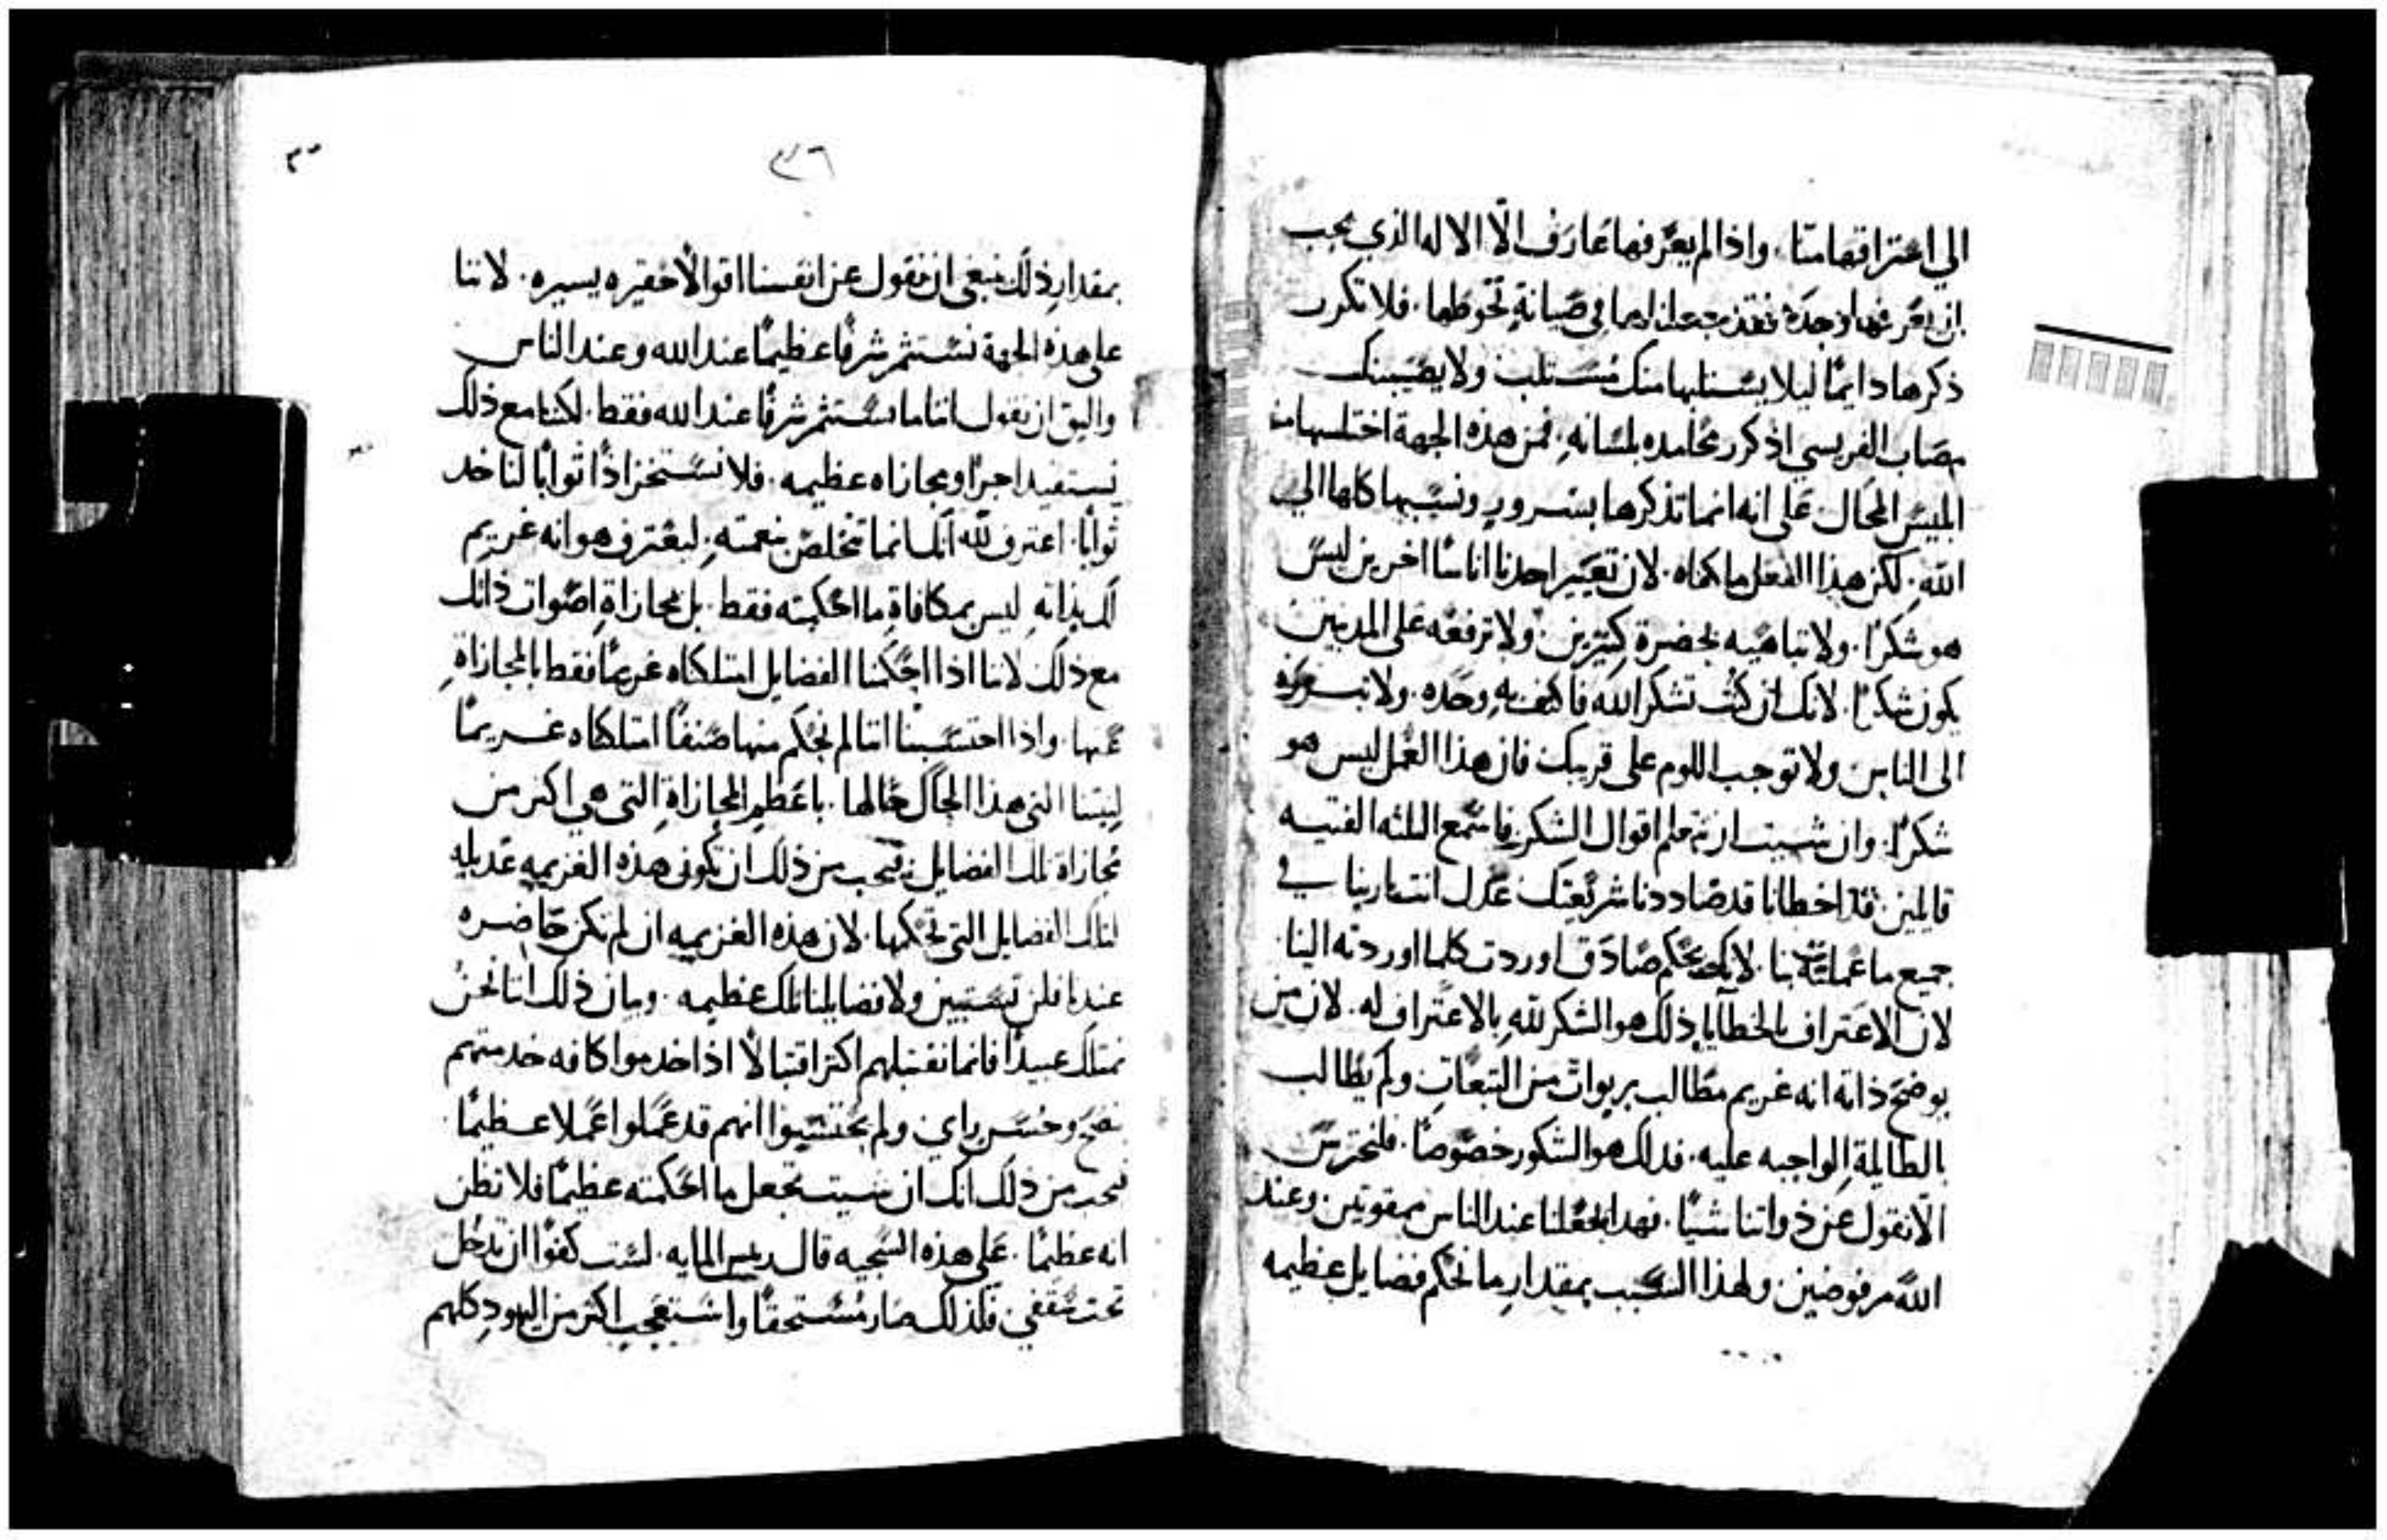 الي اعترافها منا. واذا لم يعرفها عارف الّا الاله الذي يجب
ان يعرفها وحده فقد جعلناها في صيانة تحوطها. فلا تكرر
ذكرها دايمًا ليلا يستلبها منك مستلب ولا يصيبنك
مصاب الفريسي اذ كرر محامده بلسانه. فمن هذه الجهة اختلسها منه
ابليس المحال علي انه انما تذكرها بسرور ونسبها كلها الي
الله. لكن هذا الفعل ما كفاه. لان تعيير احدنا اناسًا اخرين ليس
هو شكرًا. ولا تباهيه بحضرة كثيرين. ولا ترفعه على المدنبين
يكون شكرًا. لانك ان كنت تشكر الله فاكتف به وحده. ولا تبرزه
الى الناس ولا توجب اللوم على قريبك فان هذا العمل ليس هو
شكرًا. وان شيت ان تتعلم اقوال الشكر فاسمع الثلثه الفتيه
قايلين. قد اخطانا قد ضاددنا شريعتك عدل انت ياربنا في
جميع ما عملته بنا. لانك بحكم صادق اوردت كلما اوردته الينا
لان الاعتراف بالخطايا ذلك هو الشكر لله بالاعتراف له. لان من
يوضح ذاته انه غريم مطالب بربوات من التبعات ولم يطالب
بالطايلة الواجبه عليه. فدلك هو الشكور خصوصًا. فلنحترس
الّا نقول عن ذواتنا شيًا. فهذا يجعلنا عند الناس ممقوتين وعند
الله مرفوضين ولهذا السبب بمقدار ما نحكم فضايل عظيمه
٣٦
بمقدار ذلك ينبغي ان نقول عن انفسنا اقوالًا حقيره يسيره. لاننا
على هذه الجهة نستثمر شرفًا عظيمًا عند الله وعند الناس
واليق ان نقول اننا ما نستثمر شرفًا عند الله فقط. لكننا مع ذلك
نستفيد اجرًا ومجازاه عظيمه. فلا نستخز اذًا ثوابًا لناخد
ثوابًا. اعترف لله انك انما تخلص بنعمته. ليعترف هو انه غريم
لك بذاته ليس بمكافاة ما احكمته فقط. بل بمجازاة اصوات ذلك
مع ذلك لاننا اذا احكمنا الفضايل امتلكناه غريمًا فقط بالمجازاة
عنها. واذا احتسبنا اننا لم نحكم منها صنفًا امتلكناه غريمًا
لنيتنا التي هذا الحال حالها. باعظم المجازاة التي هي اكثر من
مجازاة تلك الفضايل. فيجب من ذلك ان تكون هذه الغريمه عديله
لتلك الفضايل التي نحكمها. لان هذه الغريمه ان لم تكن حاضره
عندنا فلن تستبين ولا فضايلنا تلك عظيمه. وبيان ذلك اننا نحن
نمتلك عبيدًا فانما نقبلهم اكثر اقتبالًا اذا خدموا كافه خدمتهم
بنصح وحسن راي. ولم يحتسبوا انهم قد عملوا عملًا عظيمًا
فيجب من ذلك انك ان شيت تجعل ما احكمته عظيمًا فلا تظن
انه عظيمًا. علي هذه السجيه قال رييس المايه. لست كفوًا ان تدخل
تحت سقفي فلذلك صار مستحقًا واستعجب اكثر من اليهود كلهم